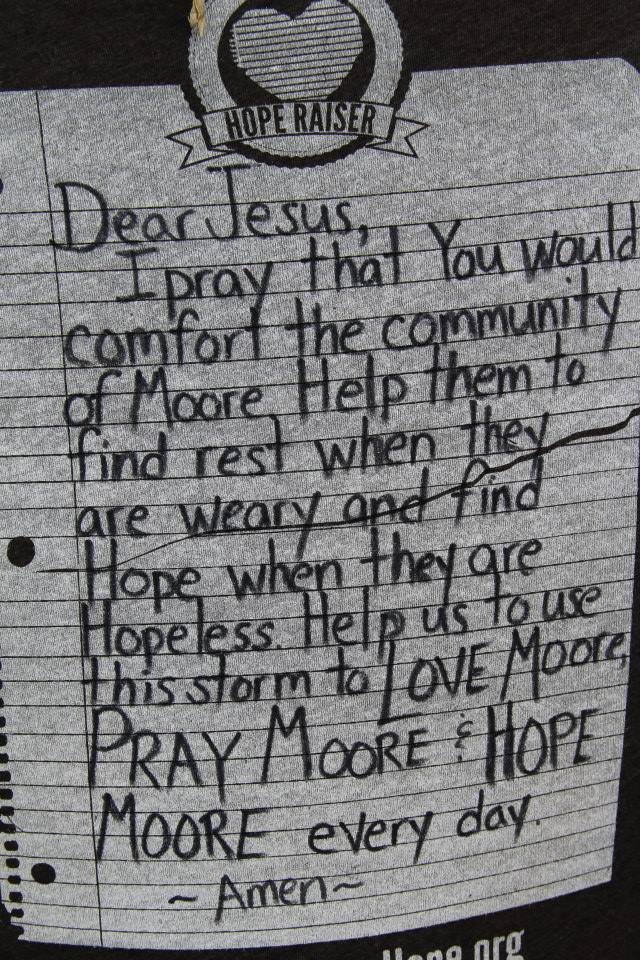 HOPE RAISER
Dear Jesus,
I pray that You would
comfort the community
of Moore. Help them to
find rest when they
are weary and find
Hope when they are
Hopeless. Help us to use
this storm to LOVE Moore,
PRAY MOORE & HOPE
MOORE every day.
~ Amen ~